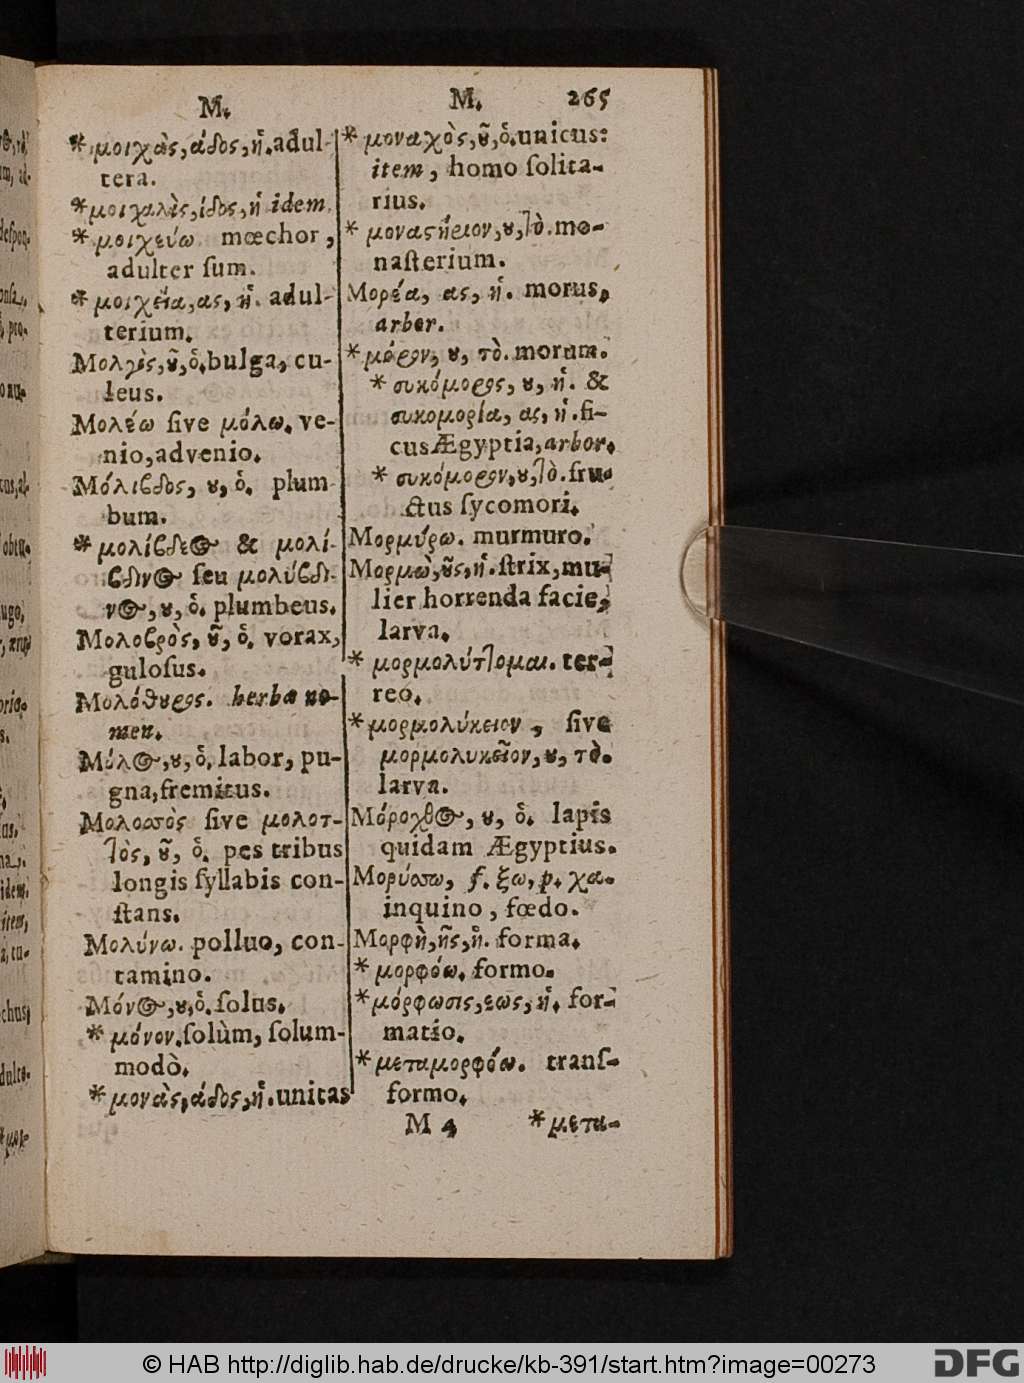 M.
* μοιχὰς, άδος, ἡ. adul-
tera.
* μοιχαλὶς, ίδος, ἡ idem.
* μοιχεύω mœchor,
adulter ſum.
* μοιχεία, ας, ἡ. adul-
terium.
Μολγὸς, ȣ͂, ὁ. bulga, cu-
leus.
Μολέω ſive μόλω. ve-
nio, advenio.
Μόλιβδος, ȣ, ὁ. plum
bum.
* μολίβδεος & μολί-
βδινος ſeu μολύβδι-
νος, ȣ, ὁ. plumbeus.
Μολοβρὸς, ȣ͂, ὁ. vorax,
guloſus.
Μολόθȣρος. herbæ no-
men.
Μῶλος, ȣ, ὁ. labor, pu-
gna, fremitus.
Μολοσσὸς ſive μολοτ-
τὸς, ȣ͂, ὁ. pes tribus
longis ſyllabis con-
ſtans.
Μολύνω. polluo, con-
tamino.
Μόνος, ȣ, ὁ. ſolus.
* μόνον. ſolùm, ſolum-
modò.
* μονὰς, άδος, ἡ. unitas
M. 265
* μοναχὸς, ȣ͂, ὁ. unicus:
item, homo ſolita-
rius.
* μοναστήριον, ȣ, τὸ. mo-
naſterium.
Μορέα, ας, ἡ. morus,
arbor.
* μόρον, ȣ, τὸ. morum.
* συκόμορος, ȣ, ἡ. &
συκομορία, ας, ἡ. fi-
cus Ægyptia, arbor.
* συκόμορον, ȣ, τὸ. fru-
ctus ſycomori.
Μορμύρω. murmuro.
Μορμὼ, ȣ͂ς, ἡ. ſtrix, mu-
lier horrenda facie,
larva.
* μορμολύττομαι. ter-
reo.
* μορμολύκειον, ſive
μορμολυκεῖον, ȣ, τὸ.
larva.
Μόροχθος, ȣ, ὁ. lapis
quidam Ægyptius.
Μορύσσω, f. ξω, p. χα.
inquino, fœdo.
Μορφὴ, ῆς, ἡ. forma.
* μορφόω. formo.
* μόρφωσις, εως, ἡ. for-
matio.
* μεταμορφόω. tranſ-
formo.
M 4 * μετα-
© HAB http://diglib.hab.de/drucke/kb-391/start.htm?image=00273
DFG